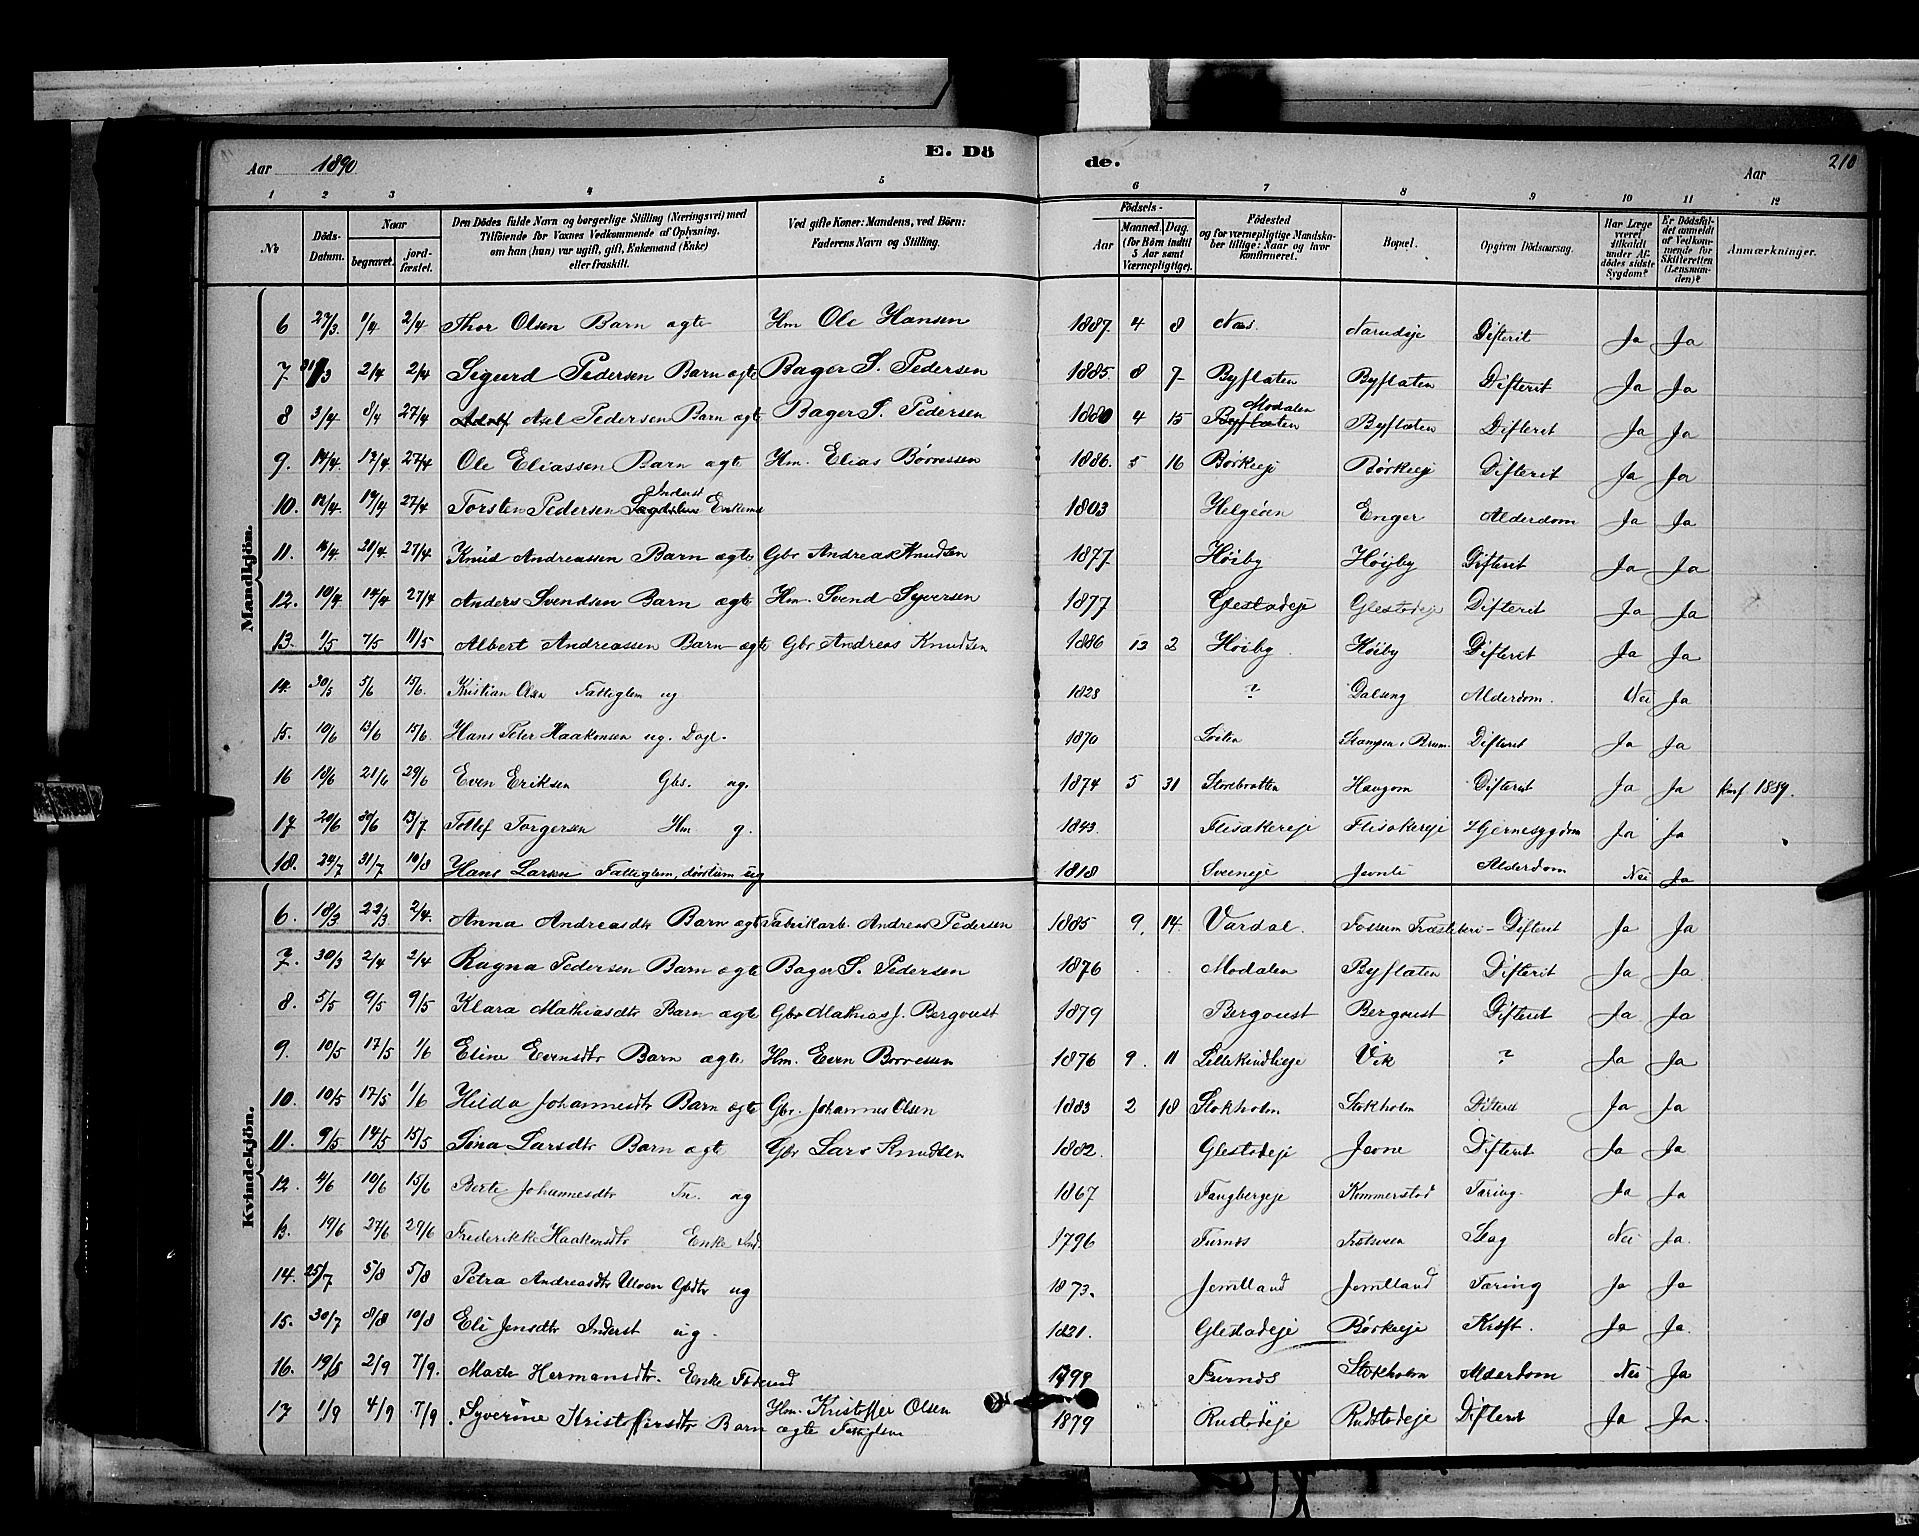 Aar 1890 E. Dö de. Aar 210
1 2 3 4 5 6 7 8 9 10 11 12
No Döds-Datum. Naar begravet. jord-fæstet. Den Dödes fulde Navn og borgerlige Stilling (Næringsvei) med Tilföiende for Voxnes Vedkommende af Oplysning, om han (hun) var ugift, gift, Enkemand (Enke) eller fraskilt. Ved gifte Koner: Mandens, ved Börn: Faderens Navn og Stilling. Födsels- Aar Maaned. Dag. (for Börn indtil 5 Aar samt Værnepligtige). Födested og for værnepligtige Mandskaber tillige: Naar og hvor konfirmeret. Bopæl. Opgiven Dödsaarsag. Har Læge været tilkaldt under Afdödes sidste Sygdom? Er Dödsfaldet anmeldt af Vedkommende for Skifteretten (Lensmanden)? Anmærkninger.
Mandkjön.
6 27/3 1/4 2/4 Thor Olsen Barn ægte Hm Ole Hansen 1887 4 8 Næs Narudeje Difterit Ja Ja
7 31/3 2/4 2/4 Sigurd Pedersen Barn ægte Bager S. Pedersen 1885 8 7 Byflaten Byflaten Difterit Ja Ja
8 3/4 8/4 27/4 Adolf Axel Pedersen Barn ægte Bager S. Pedersen 1880 4 15 Byflaten Modalen Byflaten Difterit Ja Ja
9. 14/4 17/4 27/4 Ole Eliassen Barn ægte Hm. Elias Børresen 1886. 5 16 Børkeeje Børkeeje Difterit Ja Ja
10. 12/4 19/4 27/4 Torsten Pedersen Inderst Enkem 1803 Helgøen Enger Alderdom Ja Ja
11. 14/4 21/4 27/4 Knud Andreassen Barn ægte Gbr Andreas Knudsen 1877 Høiby Høiby Difterit Ja Ja
12. 10/4 14/4 27/4 Anders Svendsen Barn ægte Hm. Svend Syversen 1877 Glestadeje Glestadeje Difterit Ja Ja
13. 1/5 7/5 11/5 Albert Andreassen Barn ægte Gbr Andreas Knudsen 1886 12 2 Høiby Høiby Difterit Ja Ja
14. 30/5 5/6 15/6. Kristian Olsen Fattiglem ug 1823 ? Dalseng Alderdom. Nei Ja
15. 10/6 13/6 15/6. Hans Peter Haakensen ug. Dagl. 1870 Løiten Stampen i Brum. Difterit Ja Ja
16 18/6 21/6 29/6 Even Eriksen Gbs. ug. 1874 5 31 Storebraatten Haugom Difterit Ja Ja Konf 1889.
17 20/6 30/6 13/7 Tollef Torgersen Hm g. 1843. Flisakereje Flisakereje Hjernesygdom Ja Ja
18. 24/7 31/7 10/8 Hans Larsen Fattiglem, døvstum ug 1818 Sveneje Jevnli Alderdom Nei Ja
Kvindekjön.
6. 18/3 22/3 2/4. Anna Andreasdtr Barn ægte Fabrikarb. Andreas Pedersen 1885 9. 14. Vardal. Fossum Træsliberi Difterit Ja Ja
7. 30/3 2/4 2/4 Ragna Pedersen Barn ægte Bager S. Pedersen 1876 Modalen Byflaten Difterit Ja Ja
8. 5/5 9/5 9/5 Klara Mathiasdtr Barn ægte Gbr Mathias J. Bergqvist 1879 Bergqvist Bergqvist Difterit Ja Ja
9. 10/5 17/5 1/6 Eline Evensdtr Barn ægte Hm. Even Børresen 1876 9. 11 Lillekindlieje Vik ? Ja Ja
10. 10/5 17/5 1/6 Hilda Johannesdtr Barn ægte Gbr. Johannes Olsen 1883 2 18 Stokholm Stokholm Difterit Ja Ja
11. 9/5 14/5 15/5 Sina Larsdtr Barn ægte Gbr Lars Knudsen 1882. Glestadeje Jevne Difterit Ja Ja
12. 4/6 10/6 15/6 Berte Johannesdtr Tn. ug 1867 Fangbergeje Kommerstad Tæring Ja Ja
13. 19/6 27/6 29/6 Frederikke Haakensdtr Enke Ind. 1796 Furnes Slag Nei Ja.
14. 25/7 5/8 5/8 Petra Andreasdtr Ulven Gbdtr ug 1873. Jemtland Jemtland Tæring Ja Ja
15. 30/7 8/8 10/8 Eli Jensdtr Inderst ug. 1821. Glestadeje Børkeeje Kræft. Ja Ja.
16. 19/8 2/9 7/9. Marte Hermansdtr. Enke Føderaad 1799 Furnes Stokholm Alderdom Nei Ja
17 1/9 4/9 7/9 Syverine Kristoffersdtr Barn ægte Hm. Kristoffer Olsen Fattiglem 1879 Rustadeje Rudstadeje Difterit Ja Ja